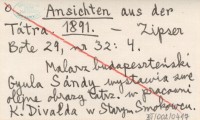 Ansichten aus der
Tátra. 1891. — Zipser
Bote 29, nr 32: 4.
Malarz budapeszteński
Gyula Sándy wystawia swe
olejne obrazy tatrz. w pracowni
K. Divalda w Starym Smokowcu.